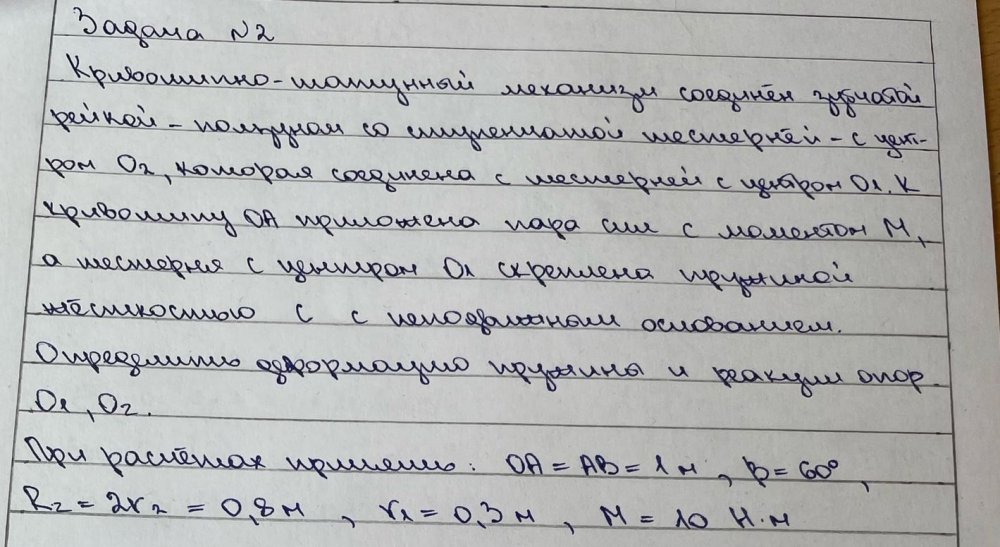 Задача №2
Кривошипно-шатунный механизм соединён зубчатой
рейкой - ползуном со ступенчатой шестерней - с цент-
ром O₂, которая соединена с шестерней с центром O₁. К
кривошипу OA приложена пара сил с моментом M,
а шестерня с центром O₁ скреплена пружиной
жёсткостью C с неподвижным основанием.
Определить деформацию пружины и реакции опор
O₁, O₂.
При расчётах принять: OA = AB = 1 м, β = 60°,
R₂ = 2r₂ = 0,8 м, r₁ = 0,3 м, M = 10 Н·м